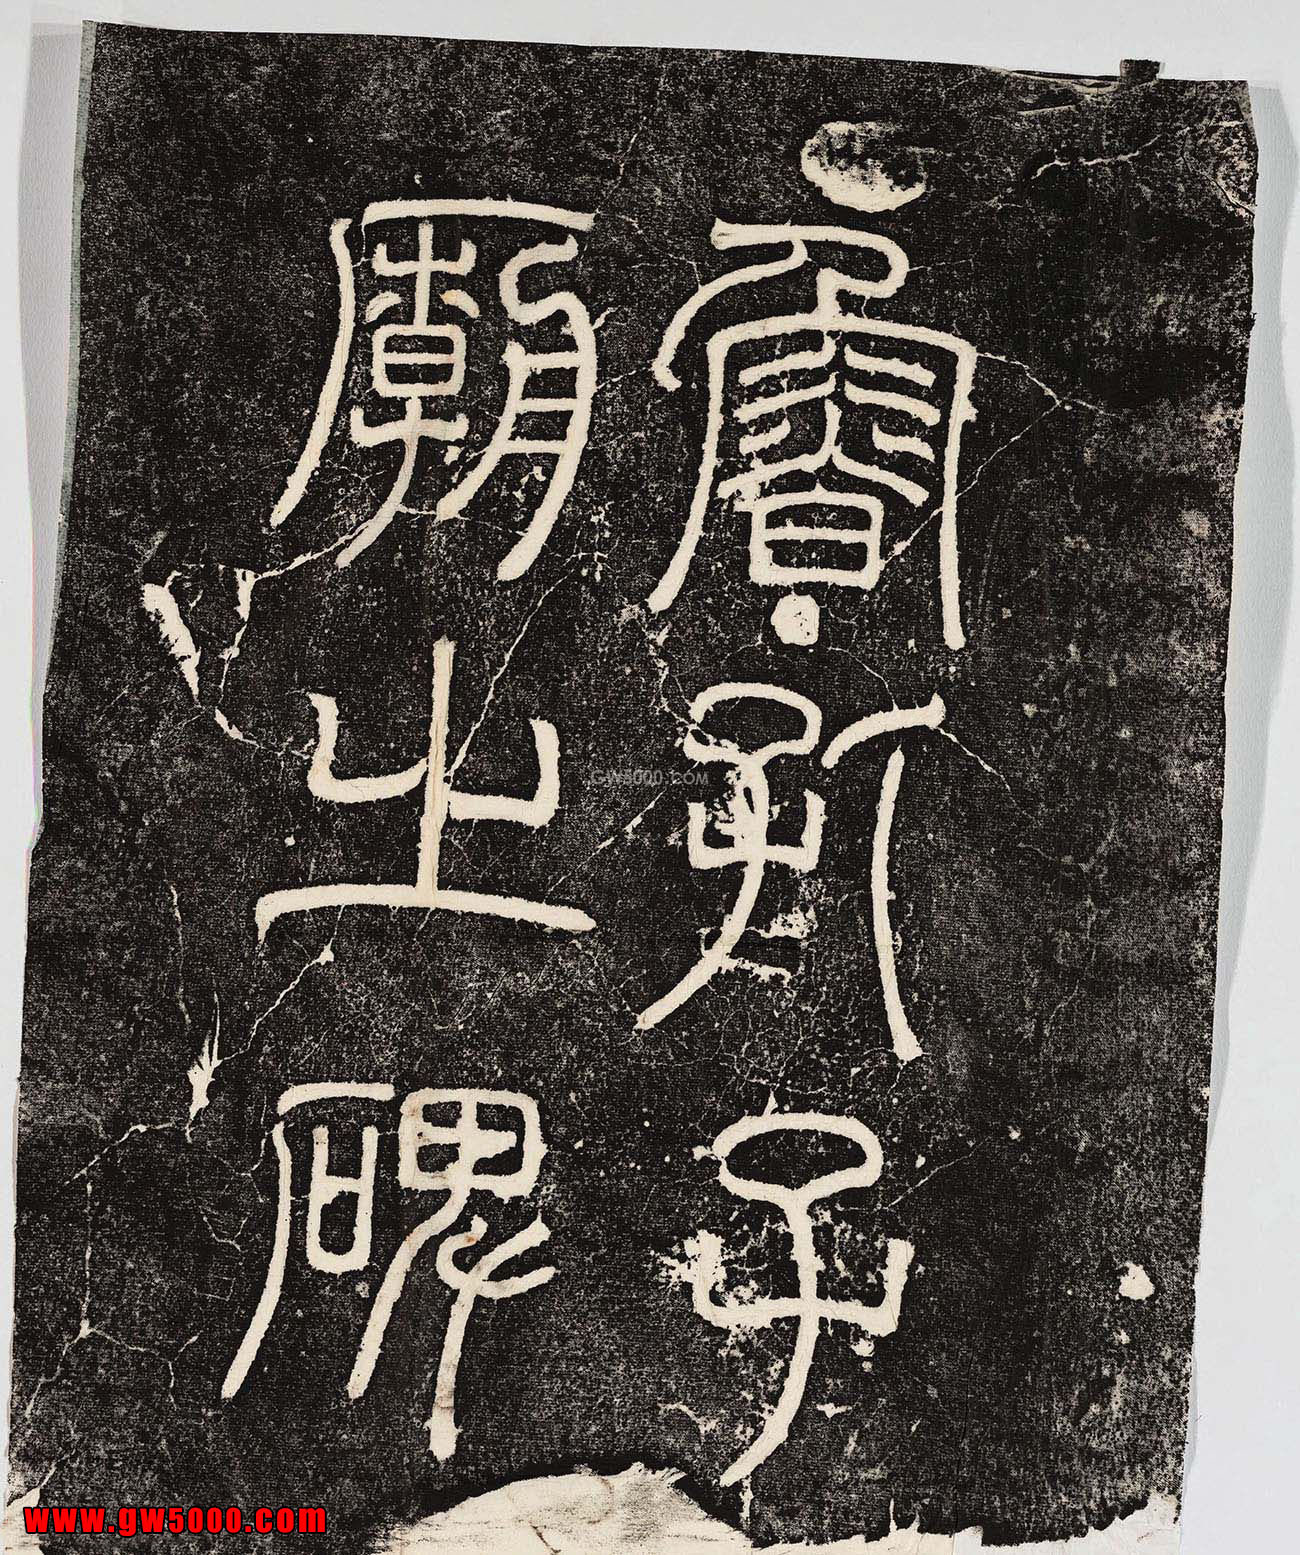 魯孔子
廟之碑
GW5000.COM
www.gw5000.com